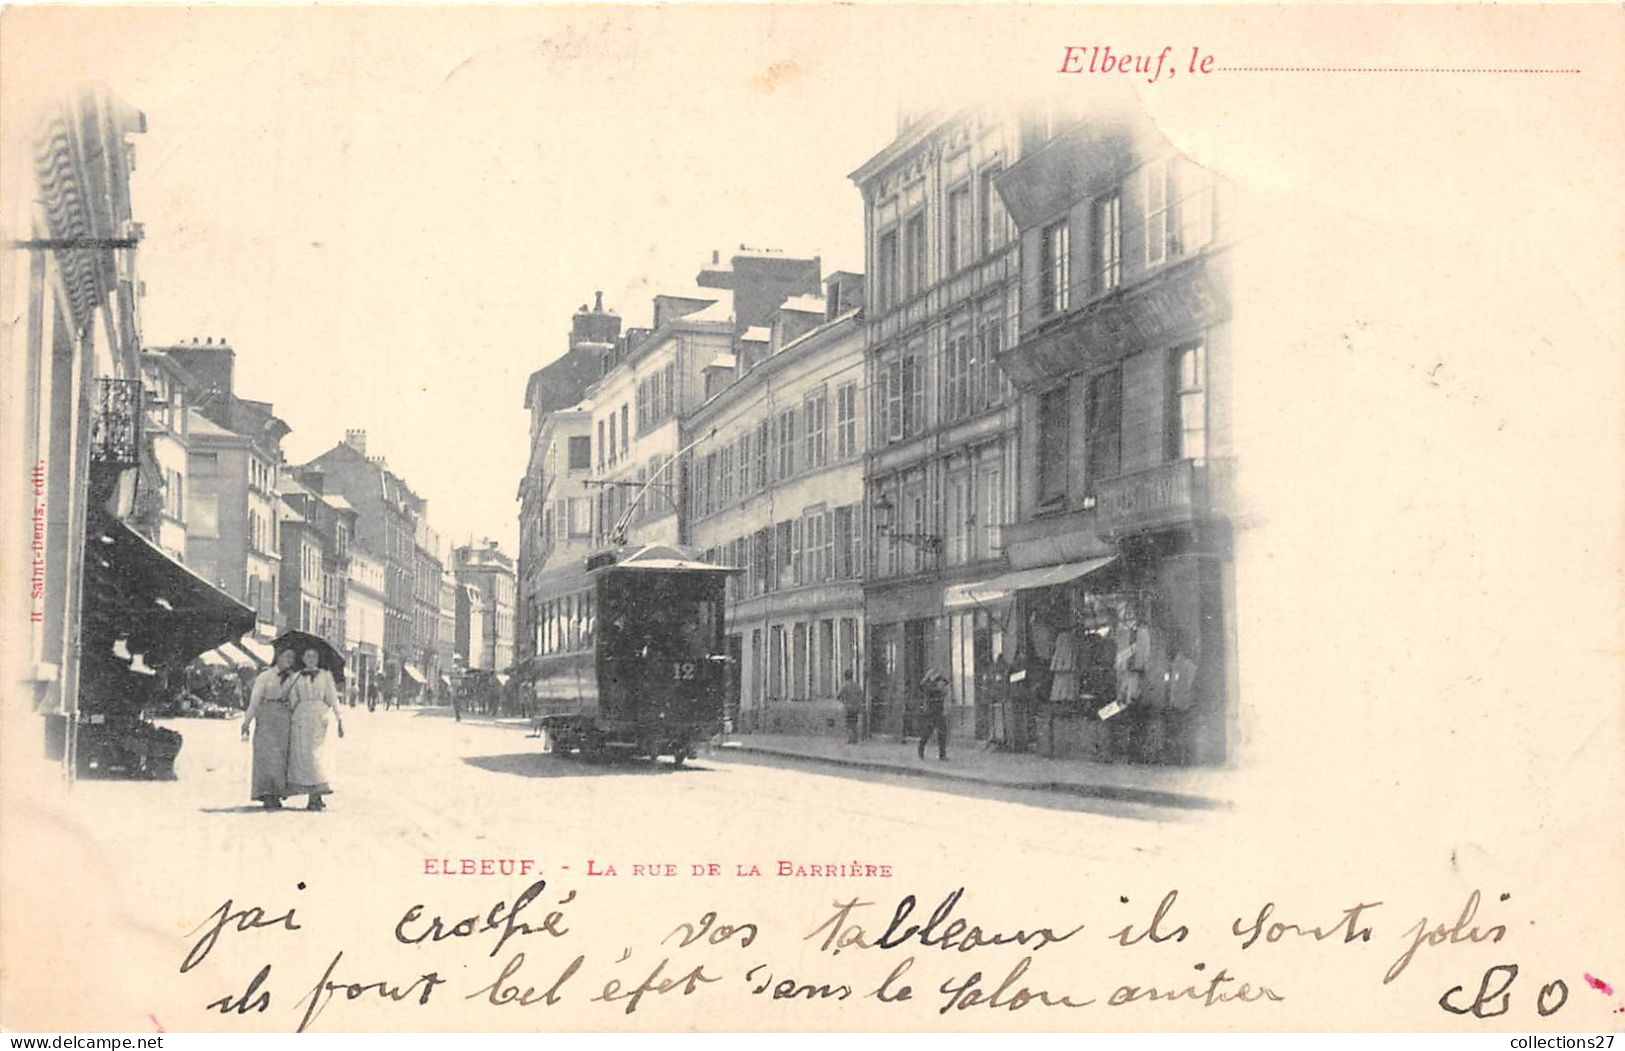 Elbeuf, le
H. Saint-Denis, édit.
12
ELBEUF. - LA RUE DE LA BARRIÈRE
jai croché vos tableaux ils sonts jolis
ils font bel éfet dans le salon amitier
www.delcampe.net
collections27